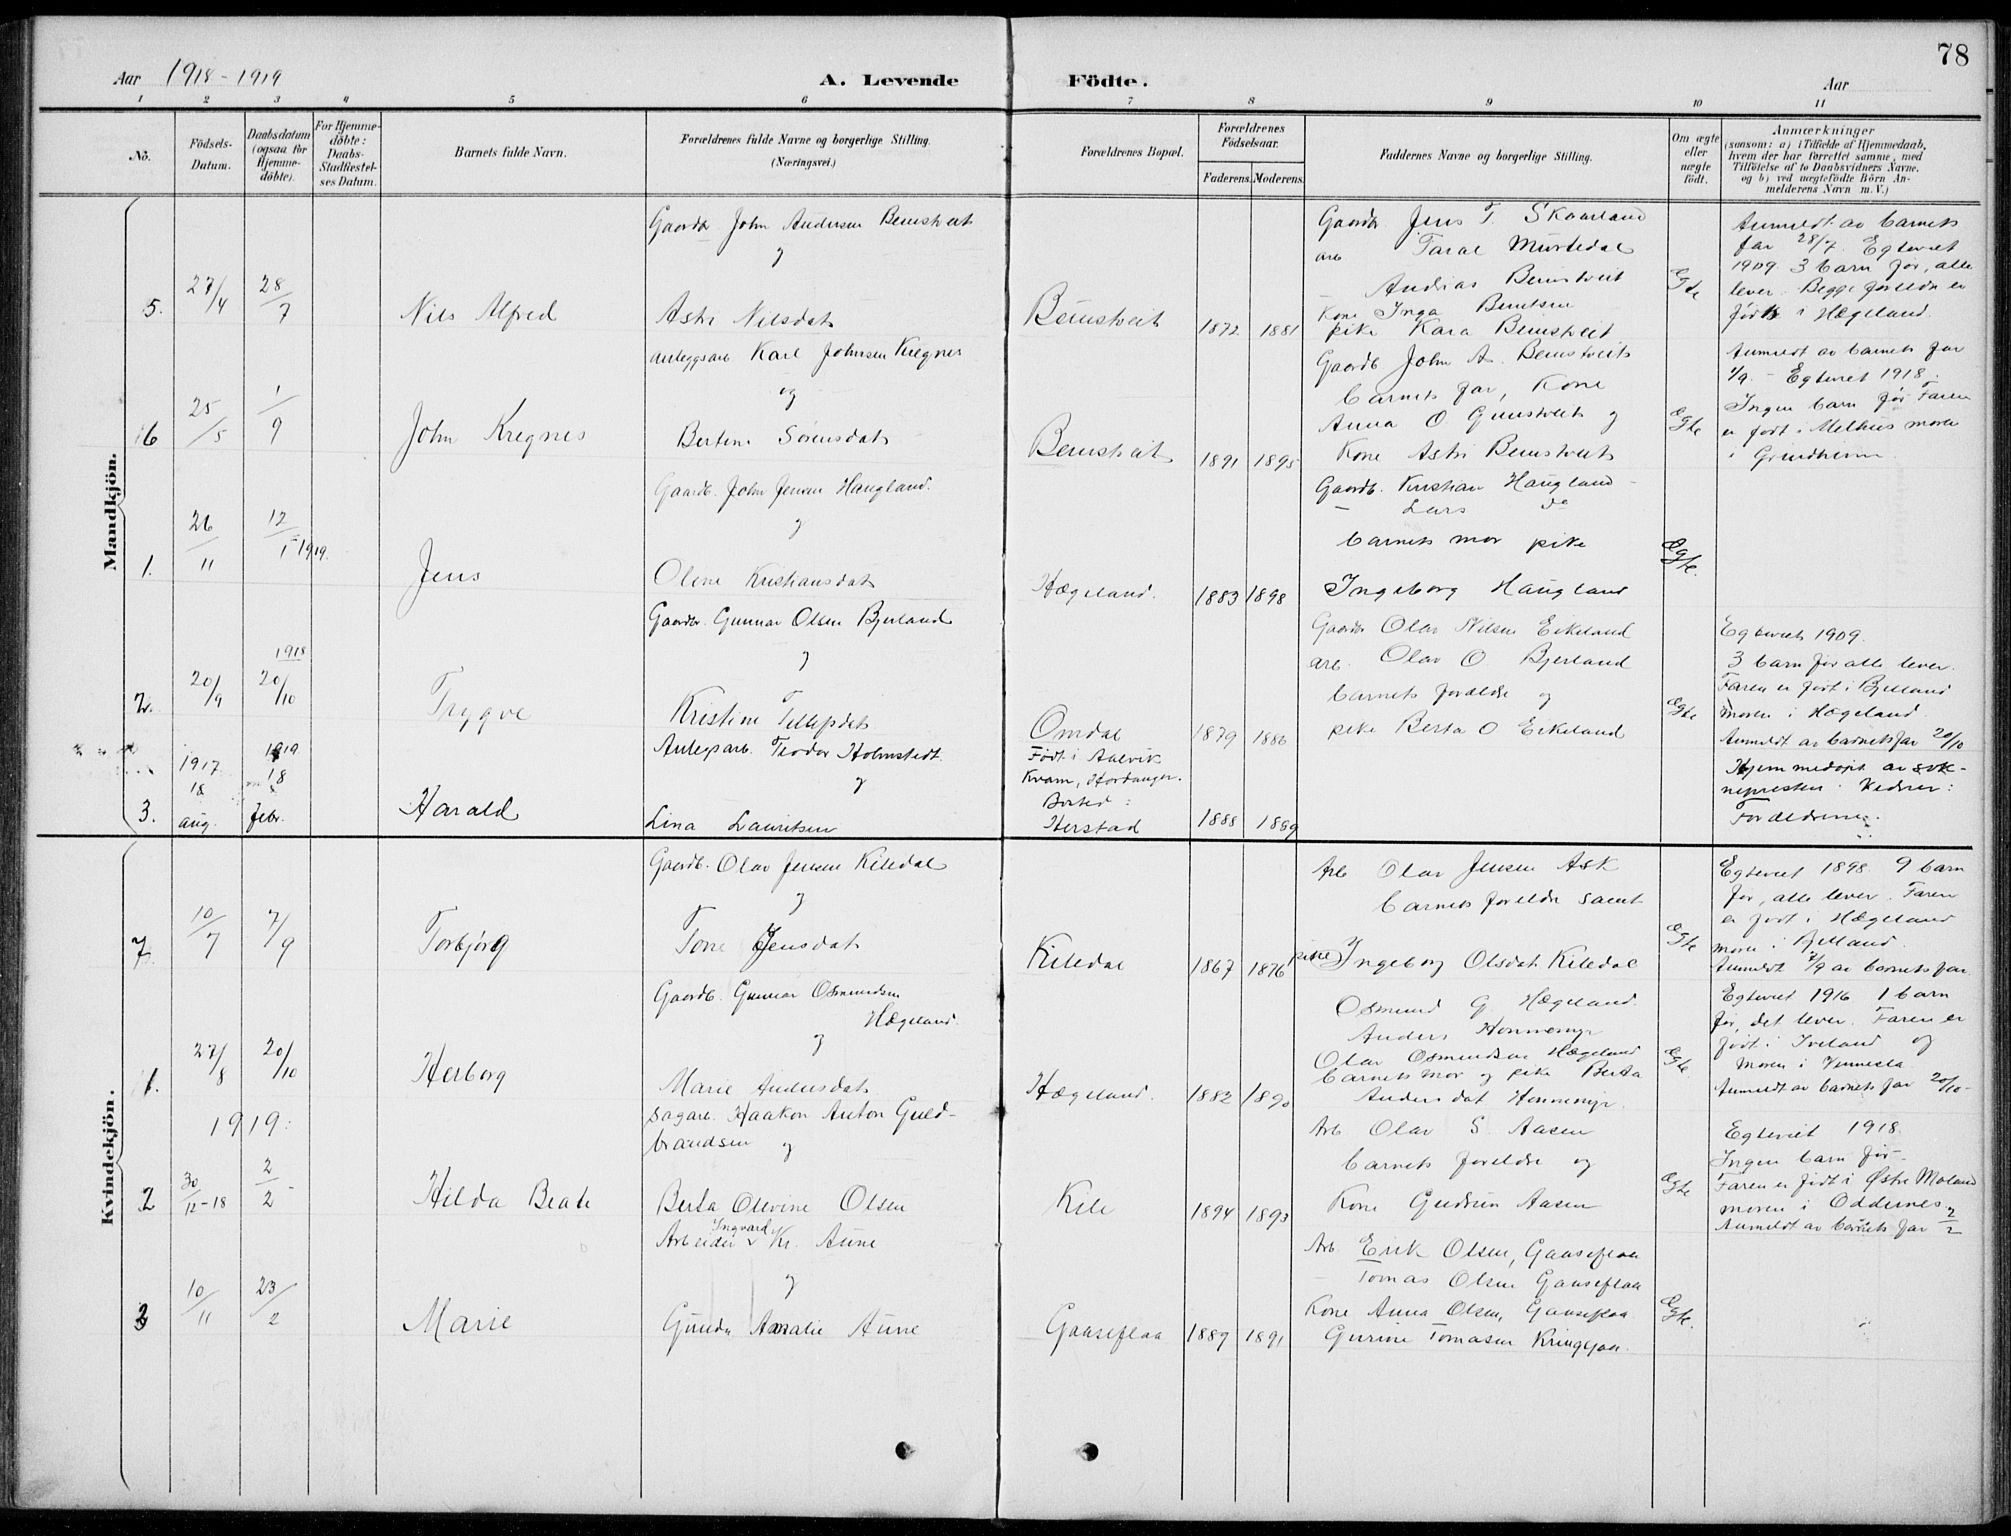 78
Aar 1918-1919
A. Levende Födte.
Aar
1 2 3 4 5 6 7 8 9 10 11
No.
Födsels-Datum.
Daabsdatum (ogsaa for Hjemme-döbte).
For Hjemme-döbte: Daabs-Stadfæstelses Datum.
Barnets fulde Navn.
Forældrenes fulde Navne og borgerlige Stilling. (Næringsvei.)
Forældrenes Bopæl.
Forældrenes Födselsaar.
Faderens. Moderens.
Faddernes Navne og borgerlige Stilling.
Om ægte eller uægte födt.
Anmærkninger
(saasom: a) i Tilfælde af Hjemmedaab, hvem der har forrettet samme, med Tilföielse af to Daabsvidners Navne, og b) ved uægtefödte Börn Anmelderens Navn m. V.)
Mandkjön.
5.
27/4
28/7
Nils Alfred
Gaardbr John Andersen Beinstveit
og
Astri Nilsdatr
Beinstveit
1872 1881
Gaardbr Jens T. Skaarland
arb Taral Murtedal
— Andreas Beinstveit
Kone Inga Berntsen
pike Kara Beinstveit
Ægte
Anmeldt av barnets
far 28/7. Egteviet
1909 3 barn før, alle
lever. Begge foreldre er
født i Hægeland.
6
25/5
1/9
John Kregnes
Anleggsarb Karl Johnsen Kregnes
og
Bertine Sörensdatr
Beinstveit
1891 1895
Gaardb John A. Beinstveit
barnets far, Kone
Anna O Beinstveit og
Kone Astri Beinstveit
Ægte
Anmeldt av barnets far
1/9. - Egteviet 1918.
Ingen barn før Faren
er født i Melhus moren
i Grindheim
1.
26/11
12/1 1919.
Jens
Gaardb. John Jensen Haugland.
og
Olene Kristiansdatr
Hægeland.
1883 1898
Gaardb. Kristian Haugland
— Lars do
barnets mor pike
Ingeborg Haugland
Ægte.
2.
20/9
1918
20/10
Trygve
Gaardbr. Gunnar Olsen Bjerland
og
Kristine Tellefsdatr
Omdal
1879 1886
Gaardbr Olav Nilsen Eikeland
arb. Olav O Bjerland
barnets foreldre og
pike Berta O Eikeland
Ægte
Egteviet 1909.
3 barn før alle lever.
Faren er født i Bjelland
moren i Hægeland.
Anmeldt av barnets far 20/10
3.
1917
18
aug.
1919
18
febr.
Harald
Anlegsarb. Teodor Holmstedt
og
Lina Lauritsen
Født i Aalvik
Kvam, Hardanger.
Bosted:
Herstad
1888 1889
Hjemmedøpt av sok-
nepresten. Vidner:
Foreldrene.
Kvindekjön.
7.
10/7
7/9
Torbjørg
Gaardb. Olav Jensen Kiledal
og
Tone Jensdatr
Kiledal
1867 1876
Arb Olav Jensen Ask
barnets foreldre samt
pike Ingeborg Olsdatr Kiledal
Ægte
Egteviet 1898 9 barn
før, alle lever. Faren
er født i Hægeland
moren i Bjelland.
Anmeldt 7/9 av barnets far
1.
27/8
20/10
Herborg
Gaardb. Gunnar Osmundsen
Hægeland.
og
Marie Andersdatr
Hægeland.
1882 1890
Osmund G Hægeland.
Anders Honnemyr
Olav Osmundsen Hægeland
barnets mor og pike Berta
Andersdat Honnemyr
Ægte.
Egteviet 1916 1 barn
før, det lever. Faren er
født i Iveland og
moren i Vennesla
Anmeldt av barnets far 20/10-
1919:
2
30/12-18
2/2
Hilda Beate
Sagarb. Haakon Anton Guld-
brandsen og
Berta Olevine Olsen
Kile
1894 1893
Arb Olav S. Aasen
barnets foreldre og
Kone Gudrun Aasen
Ægte
Egteviet 1918.
Ingen barn før-
Faren er født i Østre Moland
moren i Oddernes
Anmeldt av barnets far 2/2
3
10/11
23/2
Marie
Arbeider Ingvard Kr. Aune
og
Gunda Amalie Aune
Gaaseflaa
1889 1891
Arb. Erik Olsen, Gaaseflaa
— Tomas Olsen Gaaseflaa
Kone Anna Olsen, Gaaseflaa
Gurine Tomasen Kringsjaa.
Ægte.